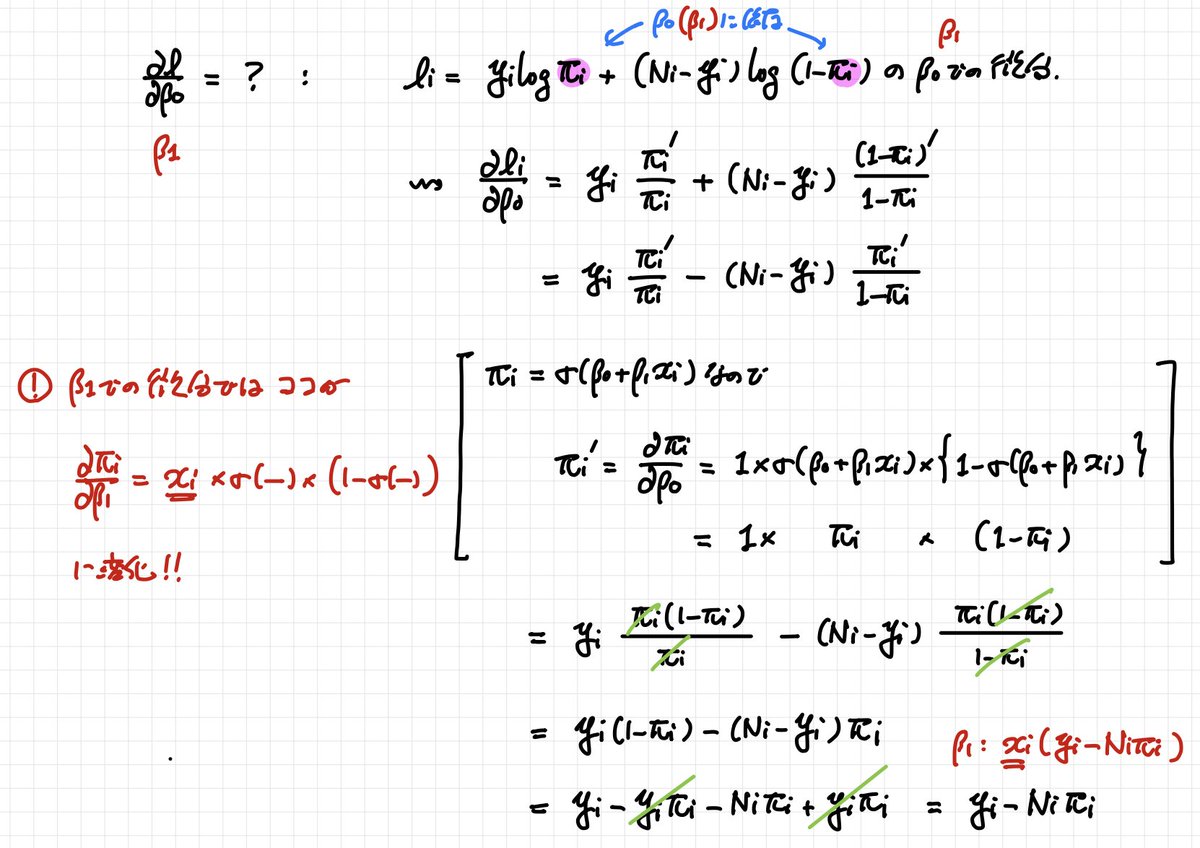 β₀(β₁)に依存
∂l/∂β₀ = ? : lᵢ = yᵢ log πᵢ + (Nᵢ - yᵢ) log (1-πᵢ) の β₀ での微分.
β₁
β1
⇝ ∂lᵢ/∂β₀ = yᵢ πᵢ′/πᵢ + (Nᵢ - yᵢ) (1-πᵢ)′/1-πᵢ
= yᵢ πᵢ′/πᵢ - (Nᵢ - yᵢ) πᵢ′/1-πᵢ
! β1での微分では ココが
∂πᵢ/∂β₁ = xᵢ × σ(―) × (1-σ(―))
に変化!!
[ πᵢ = σ(β₀+β₁xᵢ) なので
πᵢ′ = ∂πᵢ/∂β₀ = 1×σ(β₀+β₁xᵢ)×{1-σ(β₀+β₁xᵢ)}
= 1× πᵢ × (1-πᵢ) ]
= yᵢ πᵢ(1-πᵢ)/πᵢ - (Nᵢ-yᵢ) πᵢ(1-πᵢ)/1-πᵢ
= yᵢ(1-πᵢ) - (Nᵢ-yᵢ)πᵢ
β₁: xᵢ(yᵢ-Nᵢπᵢ)
= yᵢ - yᵢπᵢ - Nᵢπᵢ + yᵢπᵢ = yᵢ - Nᵢπᵢ